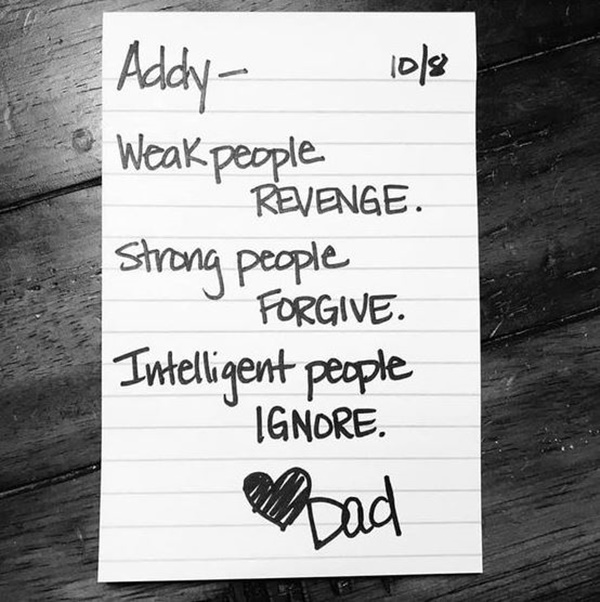 Addy- 10/8
Weak people
REVENGE.
Strong people
FORGIVE.
Intelligent people
IGNORE.
Dad